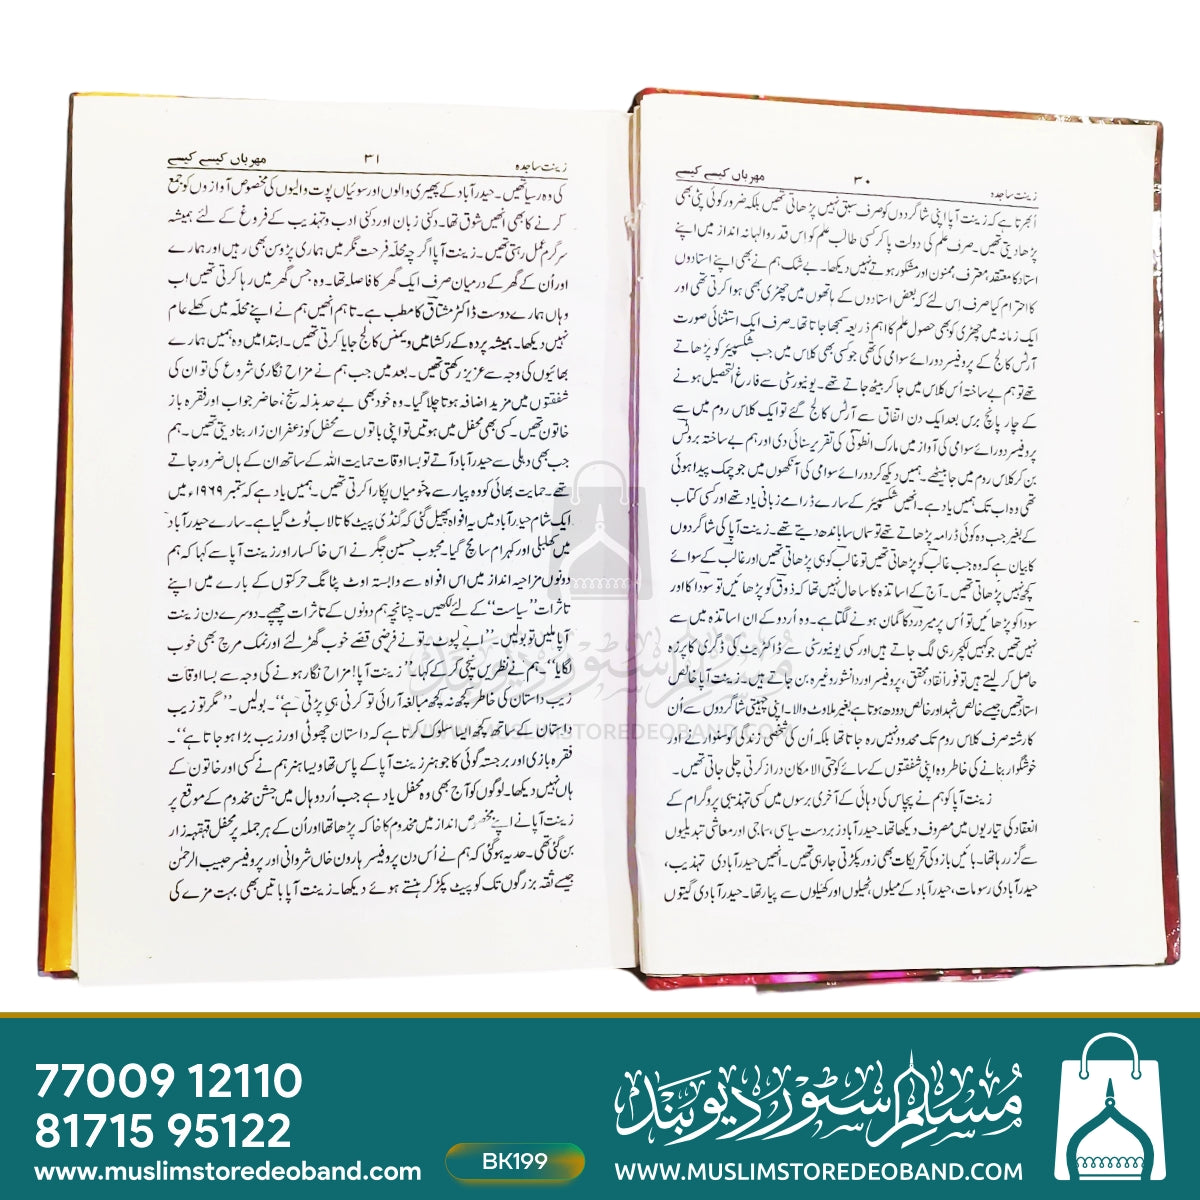 زینت ساجدہ ۳۰ مہرباں کیسے کیسے
اُبھرتا ہے کہ زینت آپا اپنی شاگردوں کو صرف سبق نہیں پڑھاتی تھیں بلکہ ضرور کوئی پٹی بھی
پڑھا دیتی تھیں۔ صرف علم کی دولت پا کر کسی طالب علم کو اِس قدر والہانہ انداز میں اپنے
استاد کا معتقد، معترف، ممنون اور مشکور ہوتے نہیں دیکھا۔ بے شک ہم نے بھی اپنے استادوں
کا احترام کیا صرف اِس لئے کہ بعض استادوں کے ہاتھوں میں چھڑی بھی ہوا کرتی تھی اور
ایک زمانہ میں چھڑی کو بھی حصول علم کا اہم ذریعہ سمجھا جاتا تھا۔ صرف ایک استثنائی صورت
آرٹس کالج کے پروفیسر دورائے سوامی کی تھی جو کسی بھی کلاس میں جب شکسپیئر کو پڑھاتے
تھے تو ہم بے ساختہ اُس کلاس میں جا کر بیٹھ جاتے تھے۔ یونیورسٹی سے فارغ التحصیل ہونے
کے چار پانچ برس بعد ایک دن اتفاق سے آرٹس کالج گئے تو ایک کلاس روم میں سے
پروفیسر دورائے سوامی کی آواز میں مارک انطونی کی تقریر سنائی دی اور ہم بے ساختہ بروٹس
بن کر کلاس روم میں جا بیٹھے۔ ہمیں دیکھ کر دورائے سوامی کی آنکھوں میں جو چمک پیدا ہوئی
تھی وہ اب تک ہمیں یاد ہے۔ انھیں شکسپیئر کے سارے ڈرامے زبانی یاد تھے اور کسی کتاب
کے بغیر جب وہ کوئی ڈرامہ پڑھاتے تھے تو سماں سا باندھ دیتے تھے۔ زینت آپا کی شاگردوں
کا بیان ہے کہ وہ جب غالب کو پڑھاتی تھیں تو غالب کو ہی پڑھاتی تھیں اور غالب کے سوائے
کچھ نہیں پڑھاتی تھیں۔ آج کے اساتذہ کا سا حال نہیں تھا کہ ذوق کو پڑھائیں تو سودا کا اور
سودا کو پڑھائیں تو اُس پر میر درد کا گمان ہونے لگتا ہے۔ وہ اُردو کے ان اساتذہ میں سے
نہیں تھیں جو کہیں لکچرر ہی لگ جاتے ہیں اور کسی یونیورسٹی سے ڈاکٹریٹ کی ڈگری کا پرزہ
حاصل کر لیتے ہیں تو فوراً نقاد، محقق، پروفیسر اور دانشور وغیرہ بن جاتے ہیں۔ زینت آپا خالص
استاد تھیں جیسے خالص شہد اور خالص دودھ ہوتا ہے بغیر ملاوٹ والا۔ اپنی چہیتی شاگردوں سے اُن
کا رشتہ صرف کلاس روم تک محدود نہیں رہ جاتا تھا بلکہ اُن کی شخصی زندگی کو سنوارنے اور
خوشگوار بنانے کی خاطر وہ اپنی شفقتوں کے سائے کو حتی الامکان دراز کرتی چلی جاتی تھیں۔
زینت آپا کو ہم نے پچاس کی دہائی کے آخری برسوں میں کسی تہذیبی پروگرام کے
انعقاد کی تیاریوں میں مصروف دیکھا تھا۔ حیدرآباد زبردست سیاسی، سماجی اور معاشی تبدیلیوں
سے گزر رہا تھا۔ بائیں بازو کی تحریکات بھی زور پکڑتی جا رہی تھیں۔ انھیں حیدرآبادی تہذیب،
حیدرآبادی رسومات، حیدرآباد کے میلوں ٹھیلوں اور کھیلوں سے پیار تھا۔ حیدرآبادی گیتوں
زینت ساجدہ ۳۱ مہرباں کیسے کیسے
کی وہ رسیا تھیں۔ حیدرآباد کے پھیری والوں اور سوئیاں پوت والیوں کی مخصوص آوازوں کو جمع
کرنے کا بھی انھیں شوق تھا۔ دکنی زبان اور دکنی ادب و تہذیب کے فروغ کے لئے ہمیشہ
سرگرم عمل رہتی تھیں۔ زینت آپا اگرچہ محلّہ فرحت نگر میں ہماری پڑوسن بھی رہیں اور ہمارے
اور اُن کے گھر کے درمیان صرف ایک گھر کا فاصلہ تھا۔ وہ جس گھر میں رہا کرتی تھیں اب
وہاں ہمارے دوست ڈاکٹر مشتاق کا مطب ہے۔ تاہم انھیں ہم نے اپنے محلہ میں کھلے عام
نہیں دیکھا۔ ہمیشہ پردہ کے رکشا میں ویمنس کالج جایا کرتی تھیں۔ ابتدا میں وہ ہمیں ہمارے
بھائیوں کی وجہ سے عزیز رکھتی تھیں۔ بعد میں جب ہم نے مزاح نگاری شروع کی تو ان کی
شفقتوں میں مزید اضافہ ہوتا چلا گیا۔ وہ خود بھی بے حد بذلہ سنج، حاضر جواب اور فقرہ باز
خاتون تھیں۔ کسی بھی محفل میں ہوتیں تو اپنی باتوں سے محفل کو زعفران زار بنا دیتی تھیں۔ ہم
جب بھی دہلی سے حیدرآباد آتے تو بسا اوقات حمایت اللہ کے ساتھ ان کے ہاں ضرور جاتے
تھے۔ حمایت بھائی کو وہ پیار سے چنومیاں پکارا کرتی تھیں۔ ہمیں یاد ہے کہ ستمبر ۱۹۶۹ء میں
ایک شام حیدرآباد میں یہ افواہ پھیل گئی کہ گنڈی پیٹ کا تالاب ٹوٹ گیا ہے۔ سارے حیدرآباد
میں کھلبلی اور کہرام سا مچ گیا۔ محبوب حسین جگر نے اس خاکسار اور زینت آپا سے کہا کہ ہم
دونوں مزاحیہ انداز میں اس افواہ سے وابستہ اوٹ پٹانگ حرکتوں کے بارے میں اپنے
تاثرات ’’سیاست‘‘ کے لئے لکھیں۔ چنانچہ ہم دونوں کے تاثرات چھپے۔ دوسرے دن زینت
آپا ملیں تو بولیں ’’ابے لپوٹ۔ تو نے فرضی قصے خوب گھڑ لئے اور نمک مرچ بھی خوب
لگایا‘‘۔ ہم نے نظریں نیچی کر کے کہا۔ ’’زینت آپا! مزاح نگار ہونے کی وجہ سے بسا اوقات
زیب داستان کی خاطر کچھ نہ کچھ مبالغہ آرائی تو کرنی ہی پڑتی ہے‘‘۔ بولیں۔ ’’مگر تو زیب
داستان کے ساتھ کچھ ایسا سلوک کرتا ہے کہ داستان چھوٹی اور زیب بڑا ہو جاتا ہے‘‘۔
فقرہ بازی اور برجستہ گوئی کا جو ہنر زینت آپا کے پاس تھا ویسا ہنر ہم نے کسی اور خاتون کے
ہاں نہیں دیکھا۔ لوگوں کو آج بھی وہ محفل یاد ہے جب اُردو ہال میں جشن مخدوم کے موقع پر
زینت آپا نے اپنے مخصوص انداز میں مخدوم کا خاکہ پڑھا تھا اور اُن کے ہر جملہ پر محفل قہقہہ زار
بن گئی تھی۔ حد یہ ہو گئی کہ ہم نے اُس دن پروفیسر ہارون خاں شروانی اور پروفیسر حبیب الرحمٰن
جیسے ثقہ بزرگوں تک کو پیٹ پکڑ کر ہنستے ہوئے دیکھا۔ زینت آپا باتیں بھی بہت مزے کی
مسلم اسٹور دیوبند
WWW.MUSLIMSTOREDEOBAND.COM
77009 12110
81715 95122
www.muslimstoredeoband.com
BK199
مسلم اسٹور دیوبند
WWW.MUSLIMSTOREDEOBAND.COM